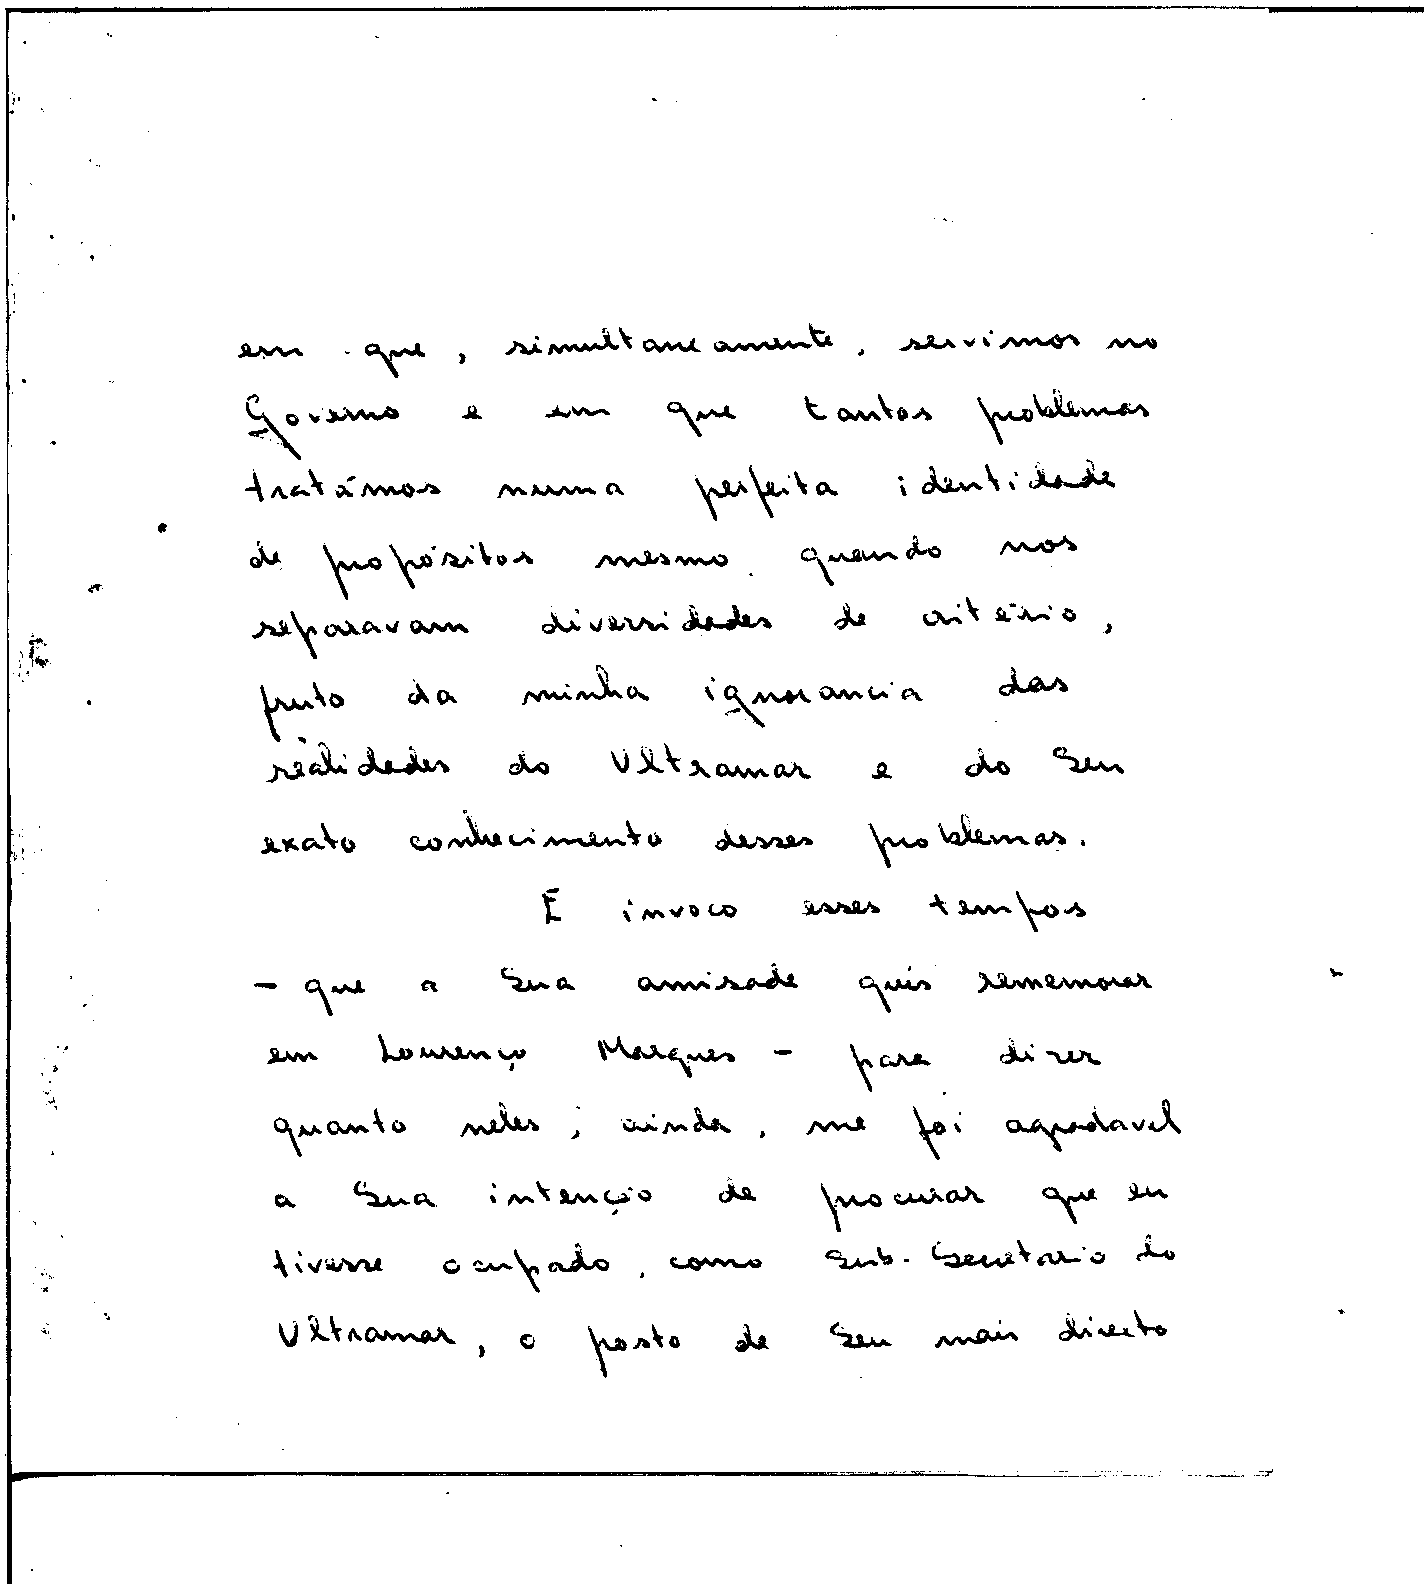 em que, simultaneamente, servimos no
Governo e em que tantos problemas
tratámos numa perfeita identidade
de propósitos mesmo quando nos
separavam diversidades de critério,
fruto da minha ignorancia das
realidades do Ultramar e do Seu
exato conhecimento desses problemas.
E invoco esses tempos
- que a Sua amisade quis rememorar
em Lourenço Marques - para dizer
quanto neles, ainda, me foi agradavel
a Sua intenção de procurar que eu
tivesse ocupado, como Sub-Secretario do
Ultramar, o posto de Seu mais directo